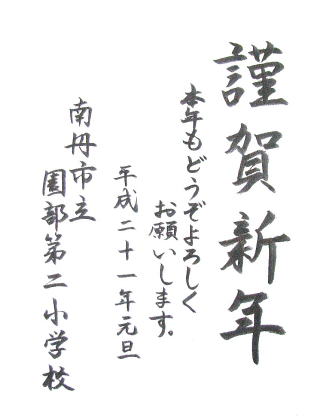 謹賀新年
本年もどうぞよろしく
お願いします。
平成二十一年元旦
南丹市立
園部第二小学校